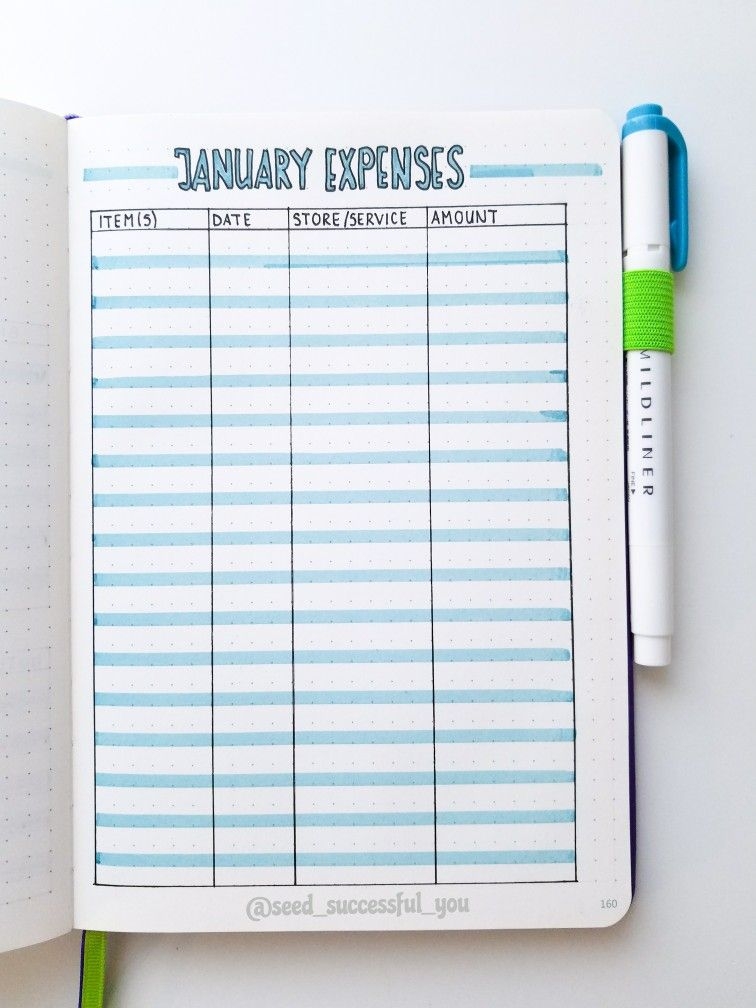 JANUARY EXPENSES
ITEM(S) DATE STORE/SERVICE AMOUNT
MILDLINER
FINE
@seed_successful_you
160